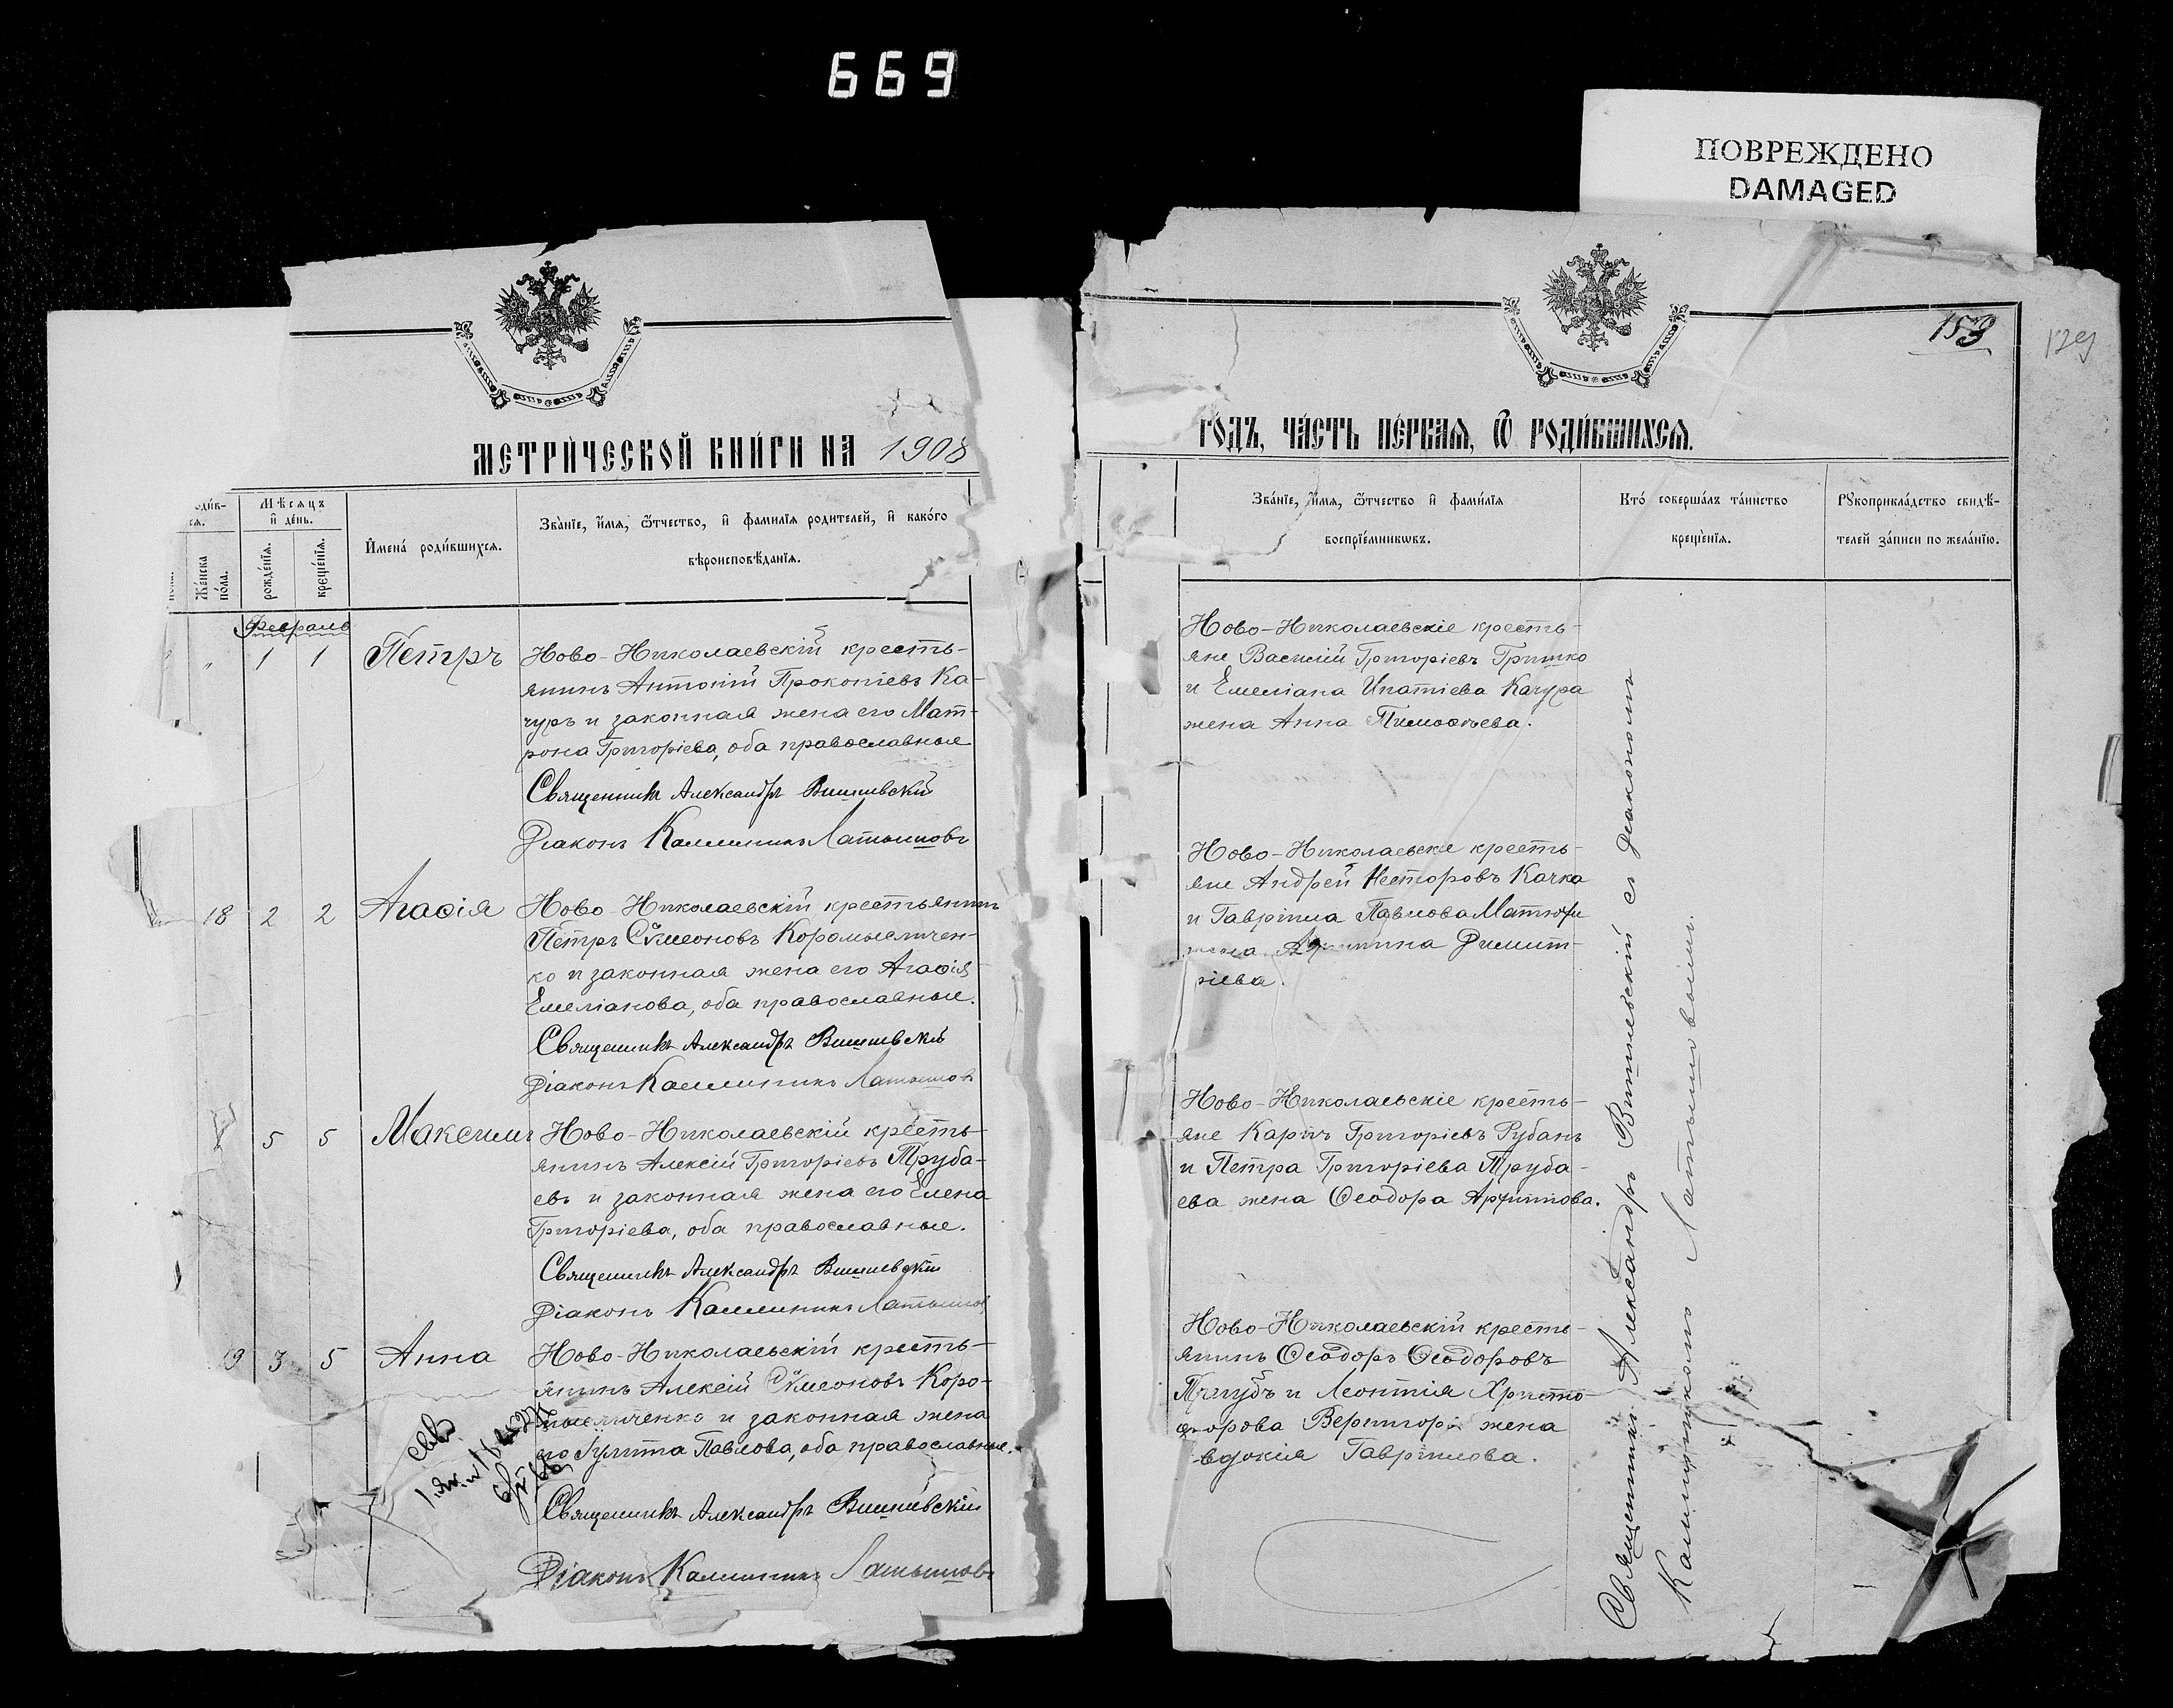 669
ПОВРЕЖДЕНО
DAMAGED
153
129
МЕТРИ́ЧЕСКОЙ КНИ́ГИ НА 1908
ГО́ДЪ, ЧА́СТЬ ПЕ́РВАЯ, Ѡ РОДИ́ВШИХСЯ.
Мѣсяцъ и де́нь.
Же́нска по́ла.
рожде́нїя.
креще́нїя.
Имена́ роди́вшихся.
Зва́нїе, и́мя, ѻ́тчество, и фами́лїя роди́телей, и како́го
вѣроисповѣ́данїя.
Зва́нїе, и́мя, ѻ́тчество и фами́лїя
воспрїе́мникѡвъ.
Кто́ соверша́лъ та́инство
креще́нїя.
Рꙋкоприкла́дство свидѣ́-
телей за́писи по жела́нїю.
Февраль
1 1 Петръ
Ново-Николаевскій кресть-
янинъ Антоній Прокопіевъ Ка-
чуръ и законная жена его Мат-
рона Григоріева, оба православные
Священникъ Александръ Вишневскій
Діаконъ Каллиникъ Латышовъ
Ново-Николаевскіе кресть-
яне Василій Григоріевъ Гришко
и Емеліана Ипатіева Качура
жена Анна Тимоѳеева.
18 2 2 Агаѳія
Ново-Николаевскій крестьянинъ
Петръ Сѵмеоновъ Коромысличен-
ко и законная жена его Агаѳія
Емеліанова, оба православные.
Священникъ Александръ Вишневскій
Діаконъ Каллиникъ Латышовъ
Ново-Николаевскіе кресть-
яне Андрей Несторовъ Качка
и Гавріила Павлова
жена Димит-
ріева.
5 5 Максимъ
Ново-Николаевскій кресть-
янинъ Алексій Григоріевъ Труба-
евъ и законная жена его Елена
Григоріева, оба православные.
Священникъ Александръ Вишневскій
Діаконъ Каллиникъ Латышовъ
Ново-Николаевскіе кресть-
яне Карпъ Григоріевъ Рубанъ
и Петра Григоріева Труба-
ева жена Ѳеодора
19 3 5 Анна
Ново-Николаевскій кресть-
янинъ Алексій Сѵмеоновъ Коро-
мысличенко и законная жена
его Іулитта Павлова, оба православные.
Священникъ Александръ Вишневскій
Діаконъ Каллиникъ Латышовъ
Ново-Николаевскій кресть-
янинъ Ѳеодоръ Ѳеодоровъ
и Леонтія Христо-
форова жена
вдокія Гавріилова.
Священникъ Александръ Вишневскій съ діакономъ
Каллиникомъ Латышовымъ.